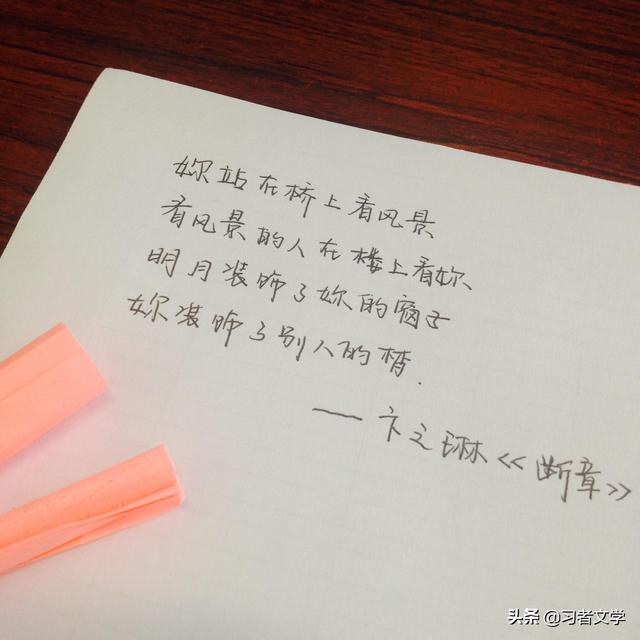 妳站在桥上看风景
看风景的人在楼上看妳、
明月装饰了妳的窗子
妳装饰了别人的梦.
——卞之琳《断章》
头条 @习者文学